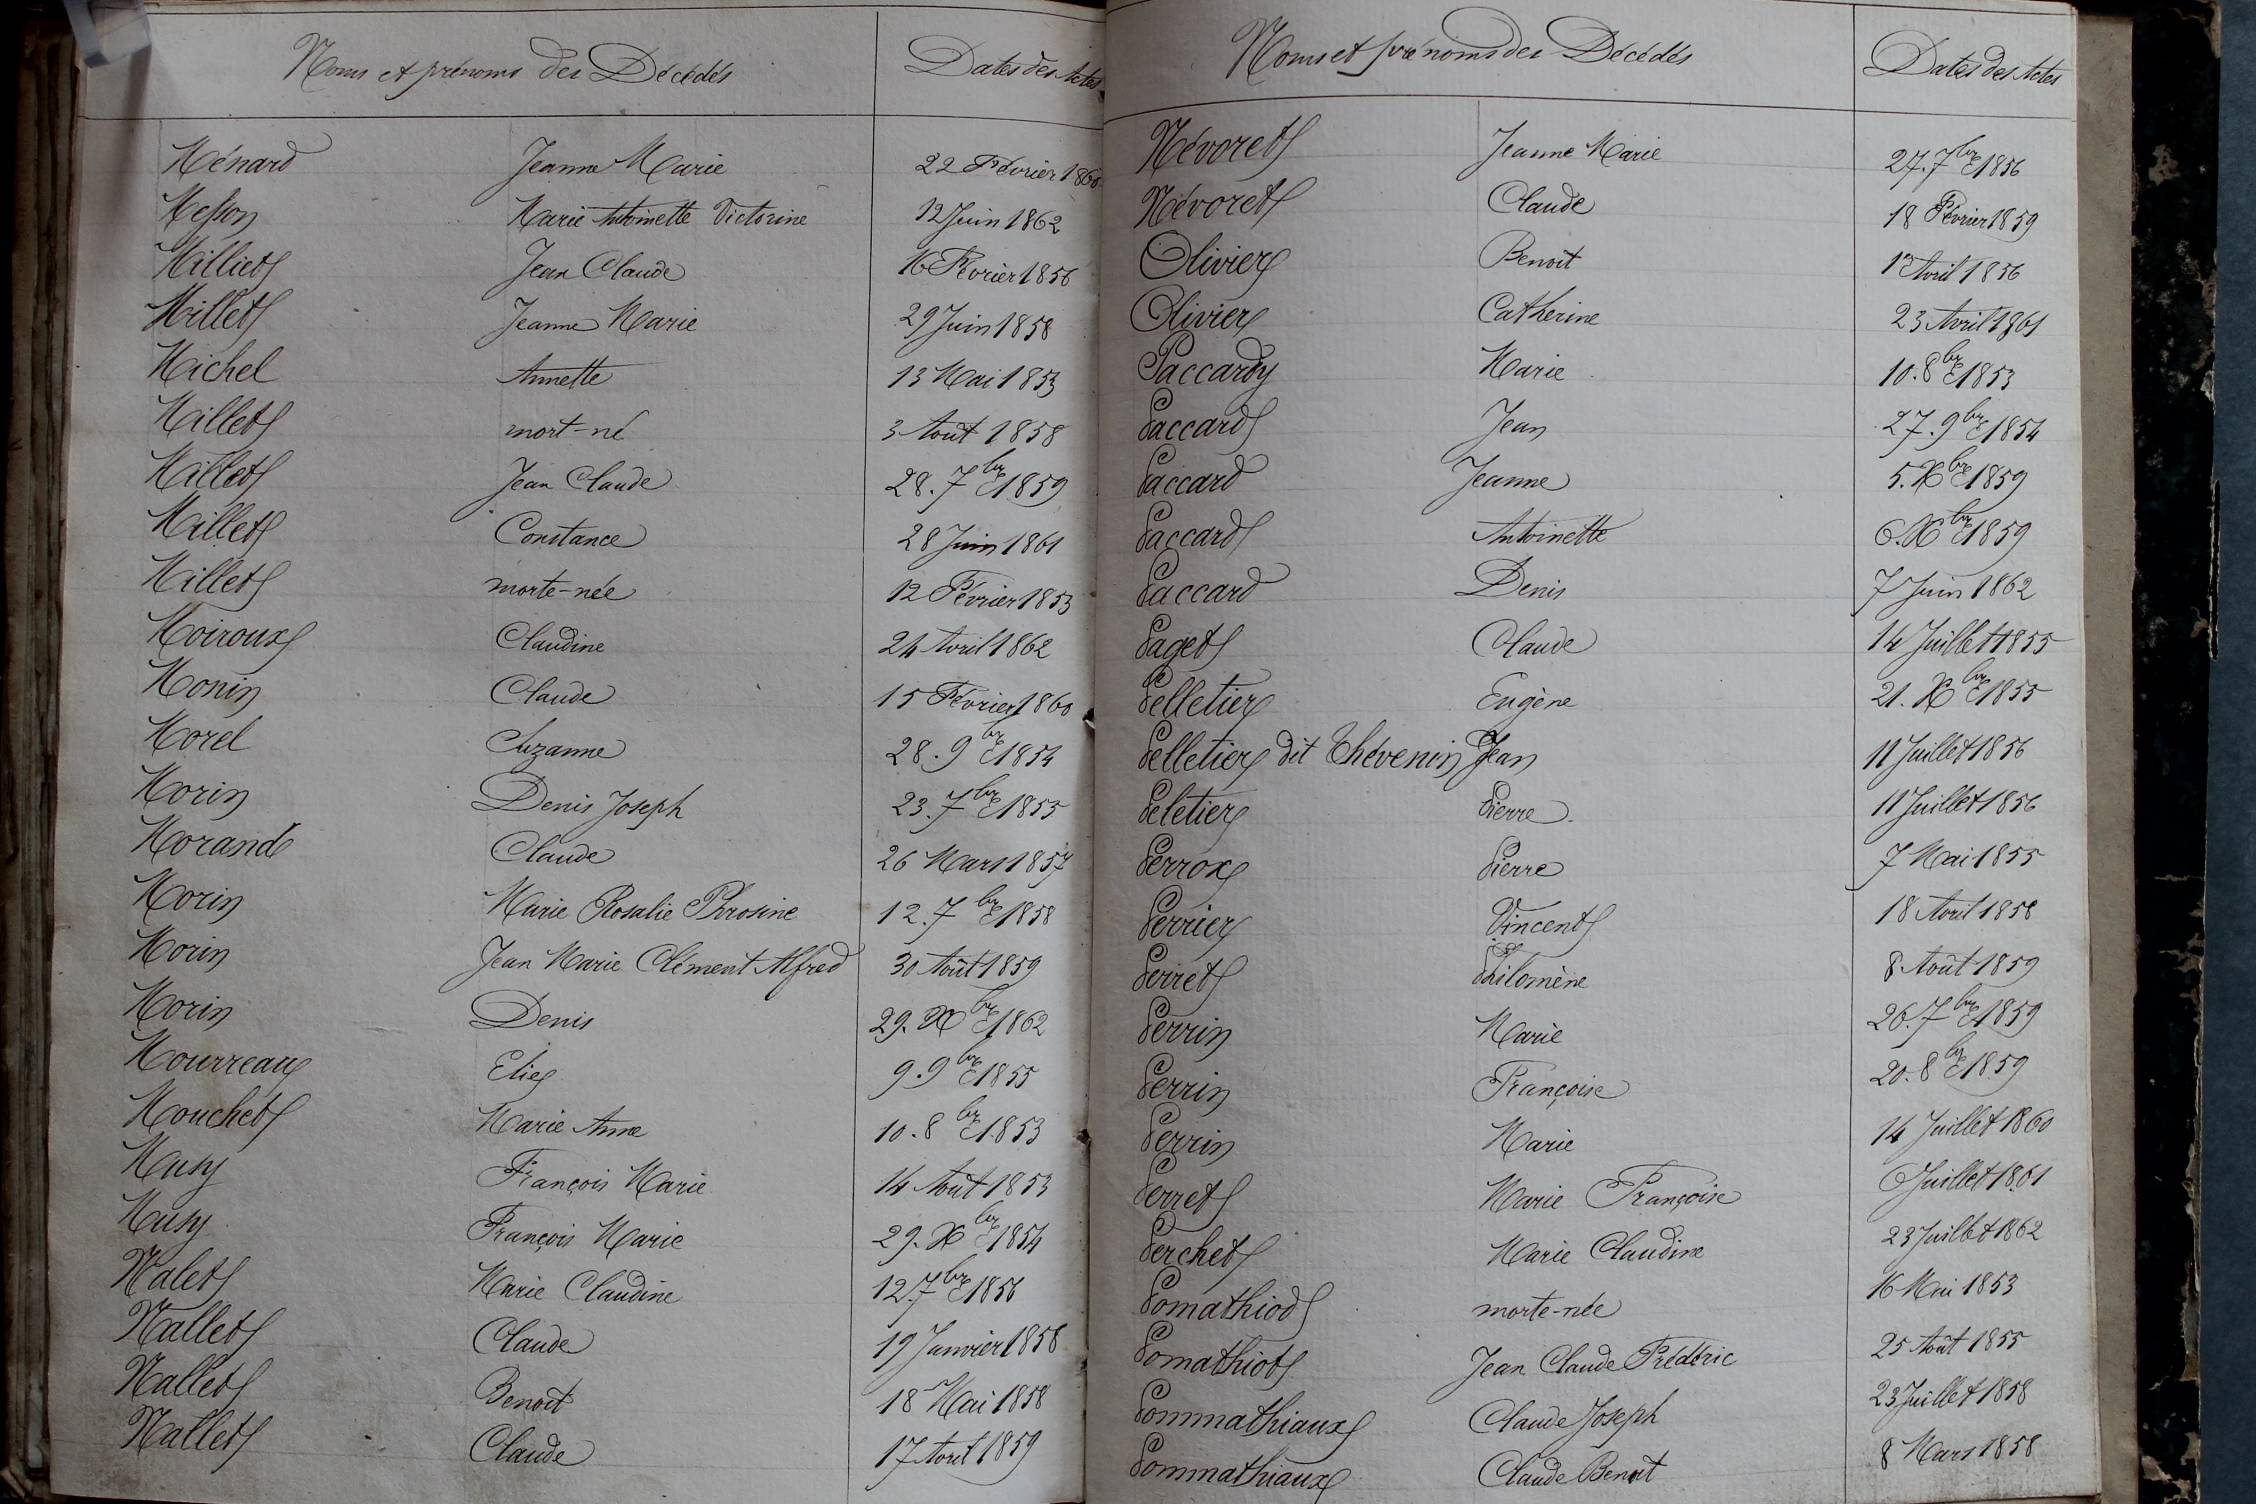 Noms et prénoms des Décédés Dates des Actes
Ménard Jeanne Marie 22 Février 1860
Messon Marie Antoinette Victorine 12 Juin 1862
Milliet Jean Claude 16 Février 1856
Millet Jeanne Marie 29 Juin 1858
Michel Annette 13 Mai 1853
Millet mort-né 3 Août 1858
Millet Jean Claude 28. 7bre 1859
Millet Constance 28 Juin 1861
Millet morte-née 12 Février 1853
Moiroux Claudine 24 Avril 1862
Monin Claude 15 Février 1860
Morel Suzanne 28. 9bre 1854
Morin Denis Joseph 23. 7bre 1855
Morand Claude 26 Mars 1857
Morin Marie Rosalie Phrosine 12. 7bre 1858
Morin Jean Marie Clément Alfred 30 Août 1859
Morin Denis 29. Xbre 1862
Mourreau Elie 9. 9bre 1855
Mouchet Marie Anne 10. 8bre 1853
Musy François Marie 14 Août 1853
Musy François Marie 29. Xbre 1854
Nalet Marie Claudine 12. 7bre 1856
Nallet Claude 19 Janvier 1858
Nallet Benoît 18 Mai 1858
Nallet Claude 17 Avril 1859
Noms et prénoms des Décédés Dates des Actes
Névoret Jeanne Marie 27. 7bre 1856
Névoret Claude 18 Février 1859
Olivier Benoît 1er Avril 1856
Olivier Catherine 23 Avril 1861
Paccardy Marie 10. 8bre 1853
Paccard Jean 27. 9bre 1854
Paccard Jeanne 5. Xbre 1859
Paccard Antoinette 6. Xbre 1859
Paccard Denis 7 Juin 1862
Paget Claude 14 Juillet 1855
Pelletier Eugène 21. Xbre 1855
Pelletier dit Thévenin Jean 11 Juillet 1856
Peletier Pierre 11 Juillet 1856
Perrox Pierre 7 Mai 1855
Perrier Vincent 18 Avril 1858
Perret Philomène 8 Août 1859
Perrin Marie 26. 7bre 1859
Perrin Françoise 20. 8bre 1859
Perrin Marie 14 Juillet 1860
Perret Marie Françoise 6 Juillet 1861
Perchet Marie Claudine 23 Juillet 1862
Pomathiod morte-née 16 Mai 1853
Pomathiot Jean Claude Frédéric 25 Août 1855
Pommathiaux Claude Joseph 23 Juillet 1858
Pommathiaux Claude Benoît 8 Mars 1858